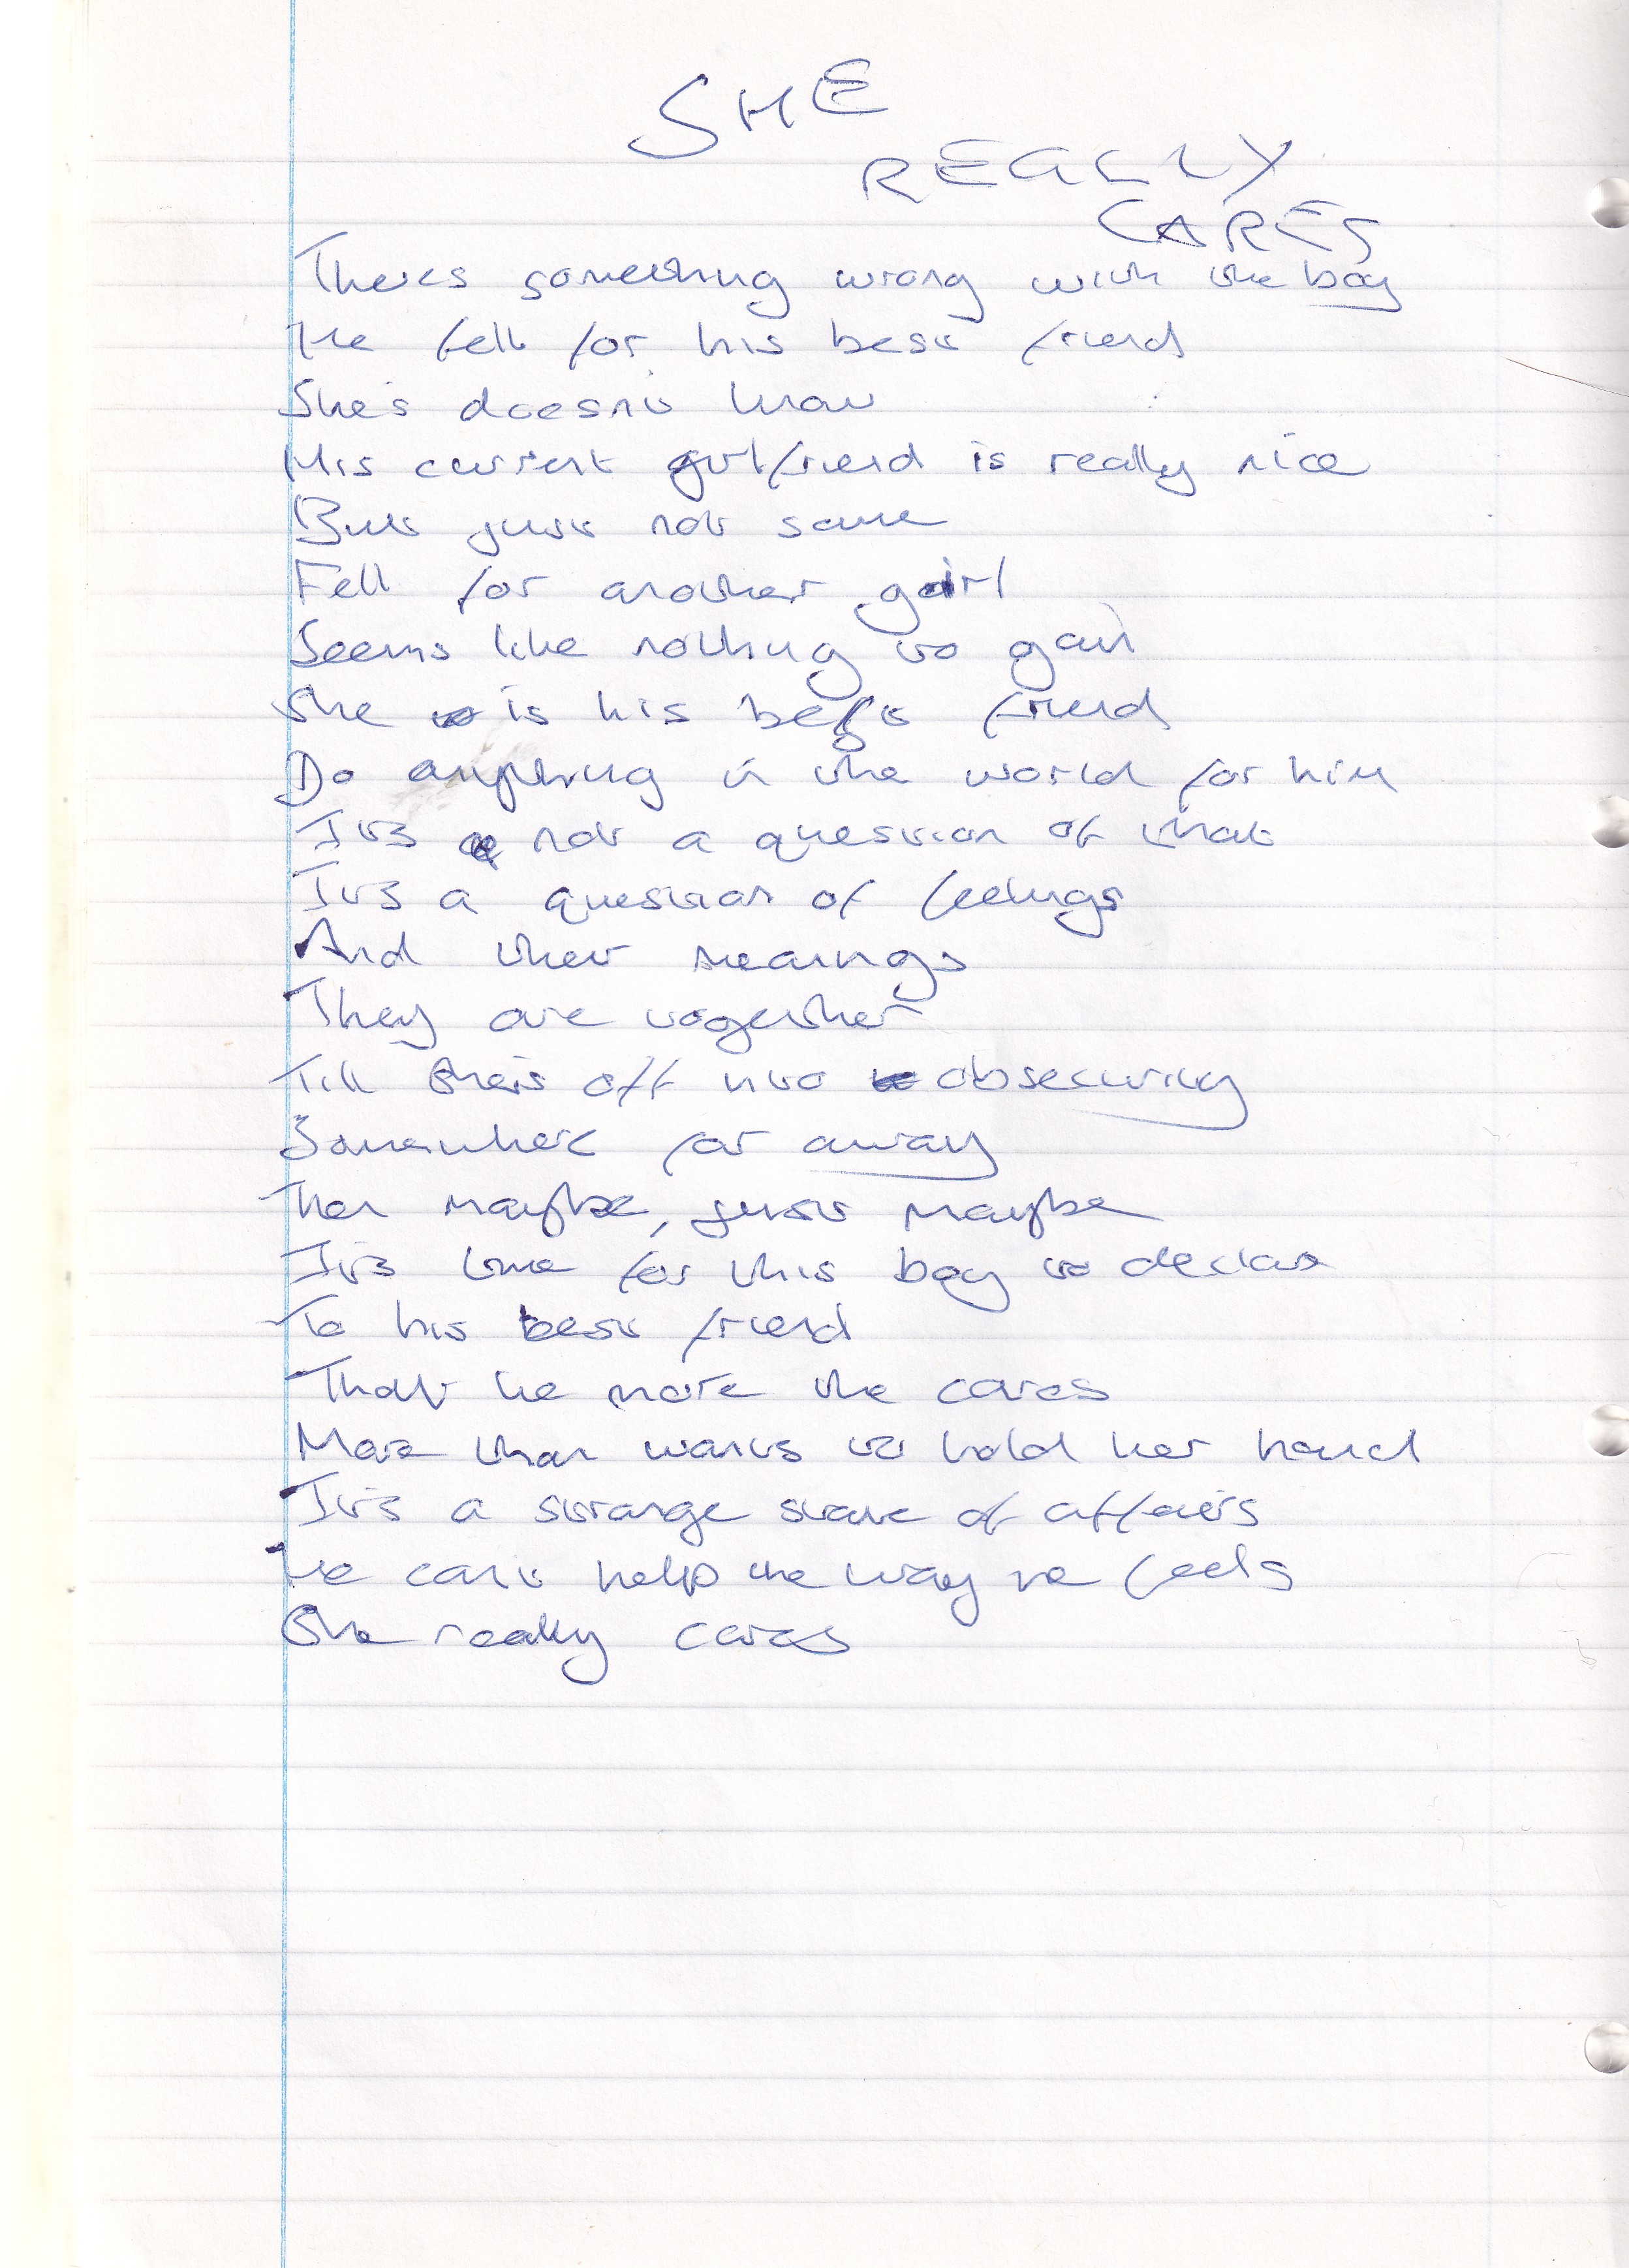 SHE
REALLY
CARES
Theres something wrong with the boy
He fell for his best friend
She's doesn't know
His current girlfriend is really nice
But just not same
Fell for another girl
Seems like nothing to gain
She is his best friend
Do anything in the world for him
It's not a question of that
It's a question of feelings
And their meanings
They are together
Till she's off into obsecurity
Somewhere far away
Then maybe, just maybe
It's time for this boy to declare
To his best friend
That he more the cares
More than wants to hold her hand
It's a strange state of affairs
He can't help the way he feels
She really cares